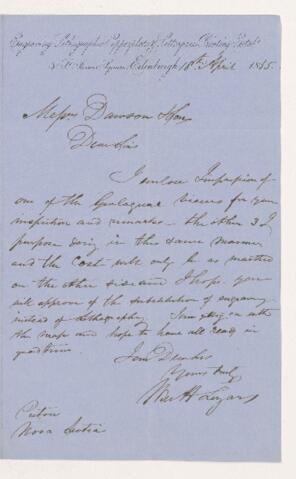 Engraving, Lithographic, Copperplate & Letterpress Printing Establ
Edinburgh 18th April 1855
Messrs Dawson & Son
Dear Sirs
I enclose Impression of
one of the views for your
inspection and remarks — the other 3 I
purpose doing in the same manner
and the cost will only be as marked
on the other side and I hope you
will approve of the substitution of engraving
instead of lithography. I am getting on with
the map and hope to have all ready in
good time.
I am Dear Sirs
Yours truly
Wm H Lizars
Pictou
Nova Scotia